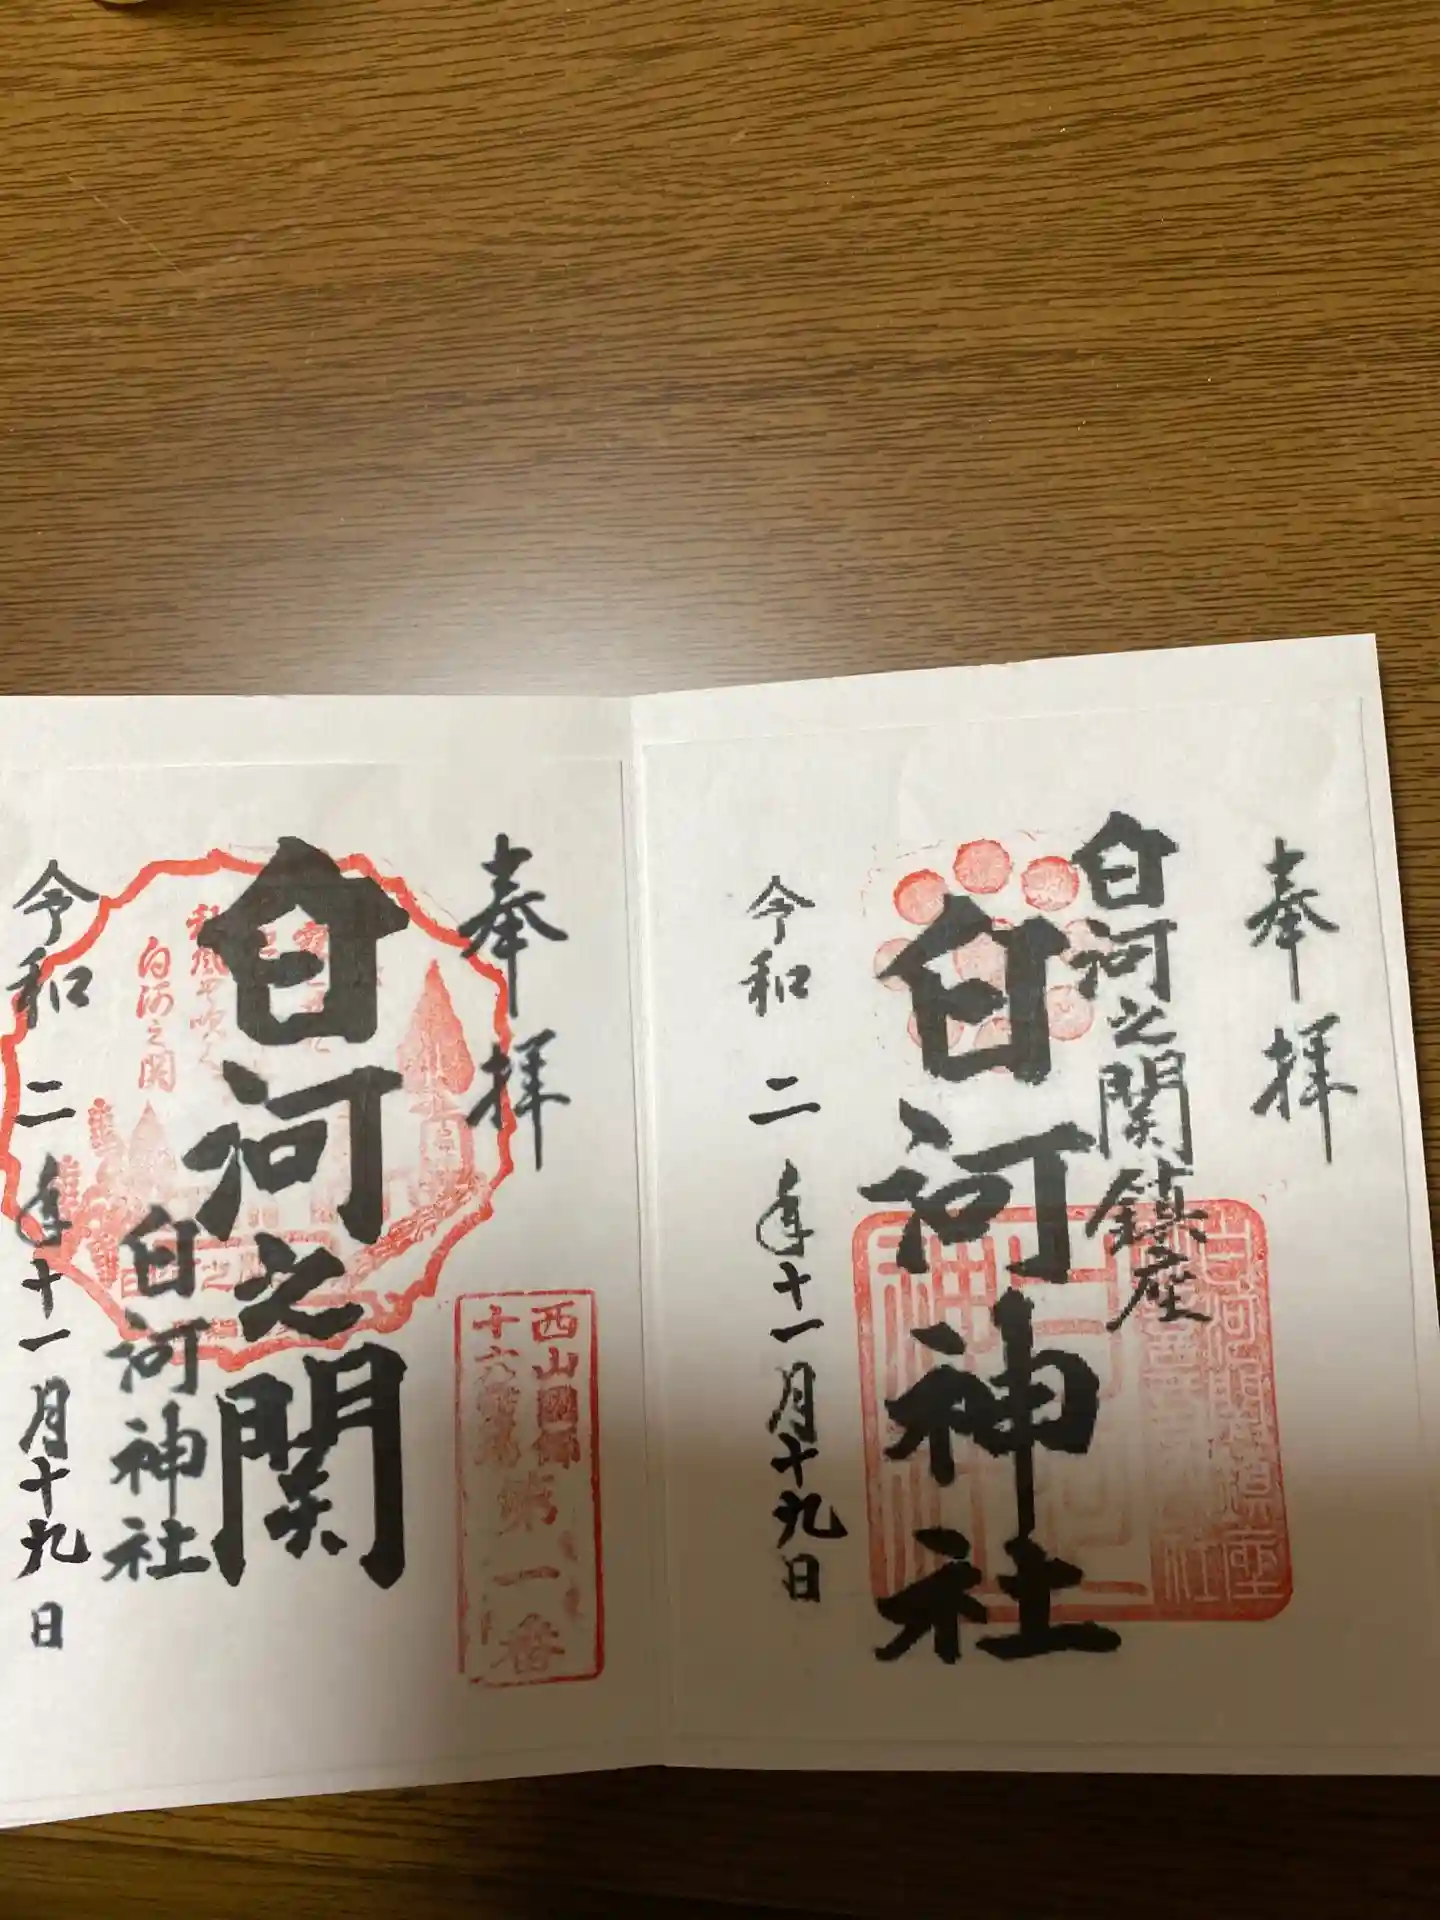 奉拝
白河之関鎮座
白河神社
令和二年十一月十九日
白河関鎮座
奉拝
白河之関
白河神社
令和二年十一月十九日
白河之関
西山國師
十六霊場
第一番